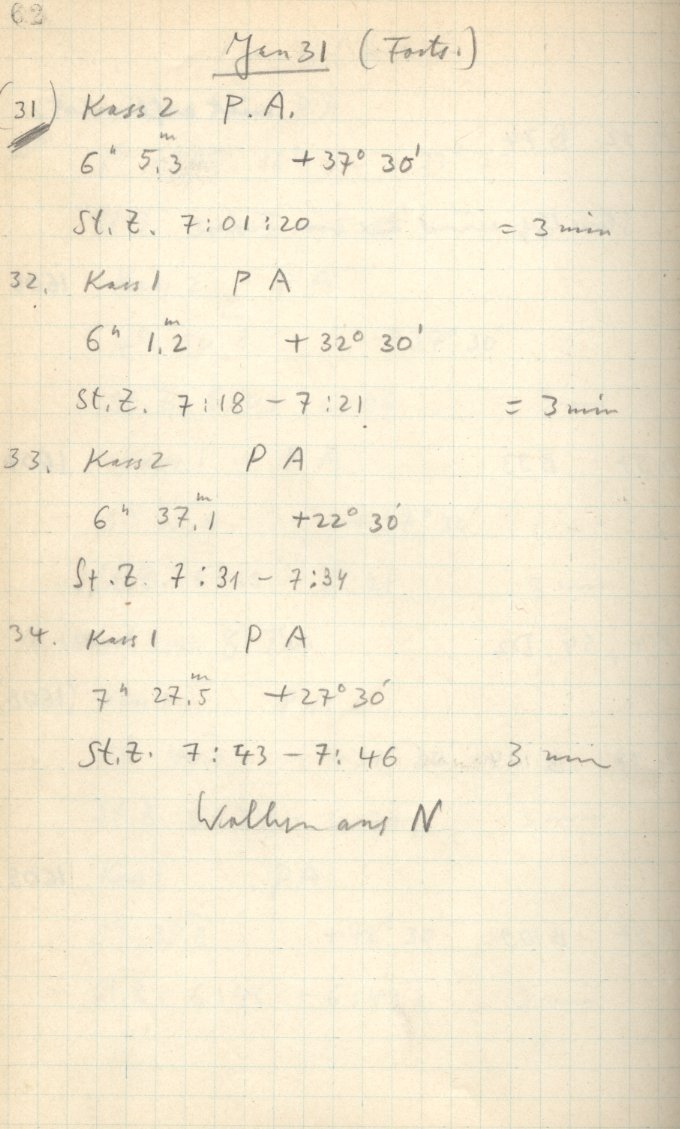 62
Jan 31 (Forts.)
(31) Kass 2 P.A.
6h 5.3m +37° 30'
St. Z. 7:01:20 = 3 min
32. Kass 1 P A
6h 1.2m +32° 30'
St. Z. 7:18 - 7:21 = 3 min
33. Kass 2 P A
6h 37.1m +22° 30'
St. Z. 7:31 - 7:34
34. Kass 1 P A
7h 27.5m +27° 30'
St. Z. 7:43 - 7:46 3 min
Wolken aus N